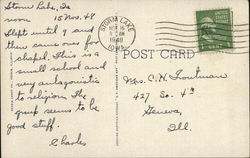 Storm Lake, Ia
noon 15 Nov. 48
Slept until 9 and
then came over for
chapel. This is a
small school and
very antagonistic
to religion. The
group seems to be
good stuff.
Charles
STORM LAKE
NOV 15
1948
IOWA
POST CARD
Mrs. C. H. Troutman
427 So. 4th
Geneva,
Ill.